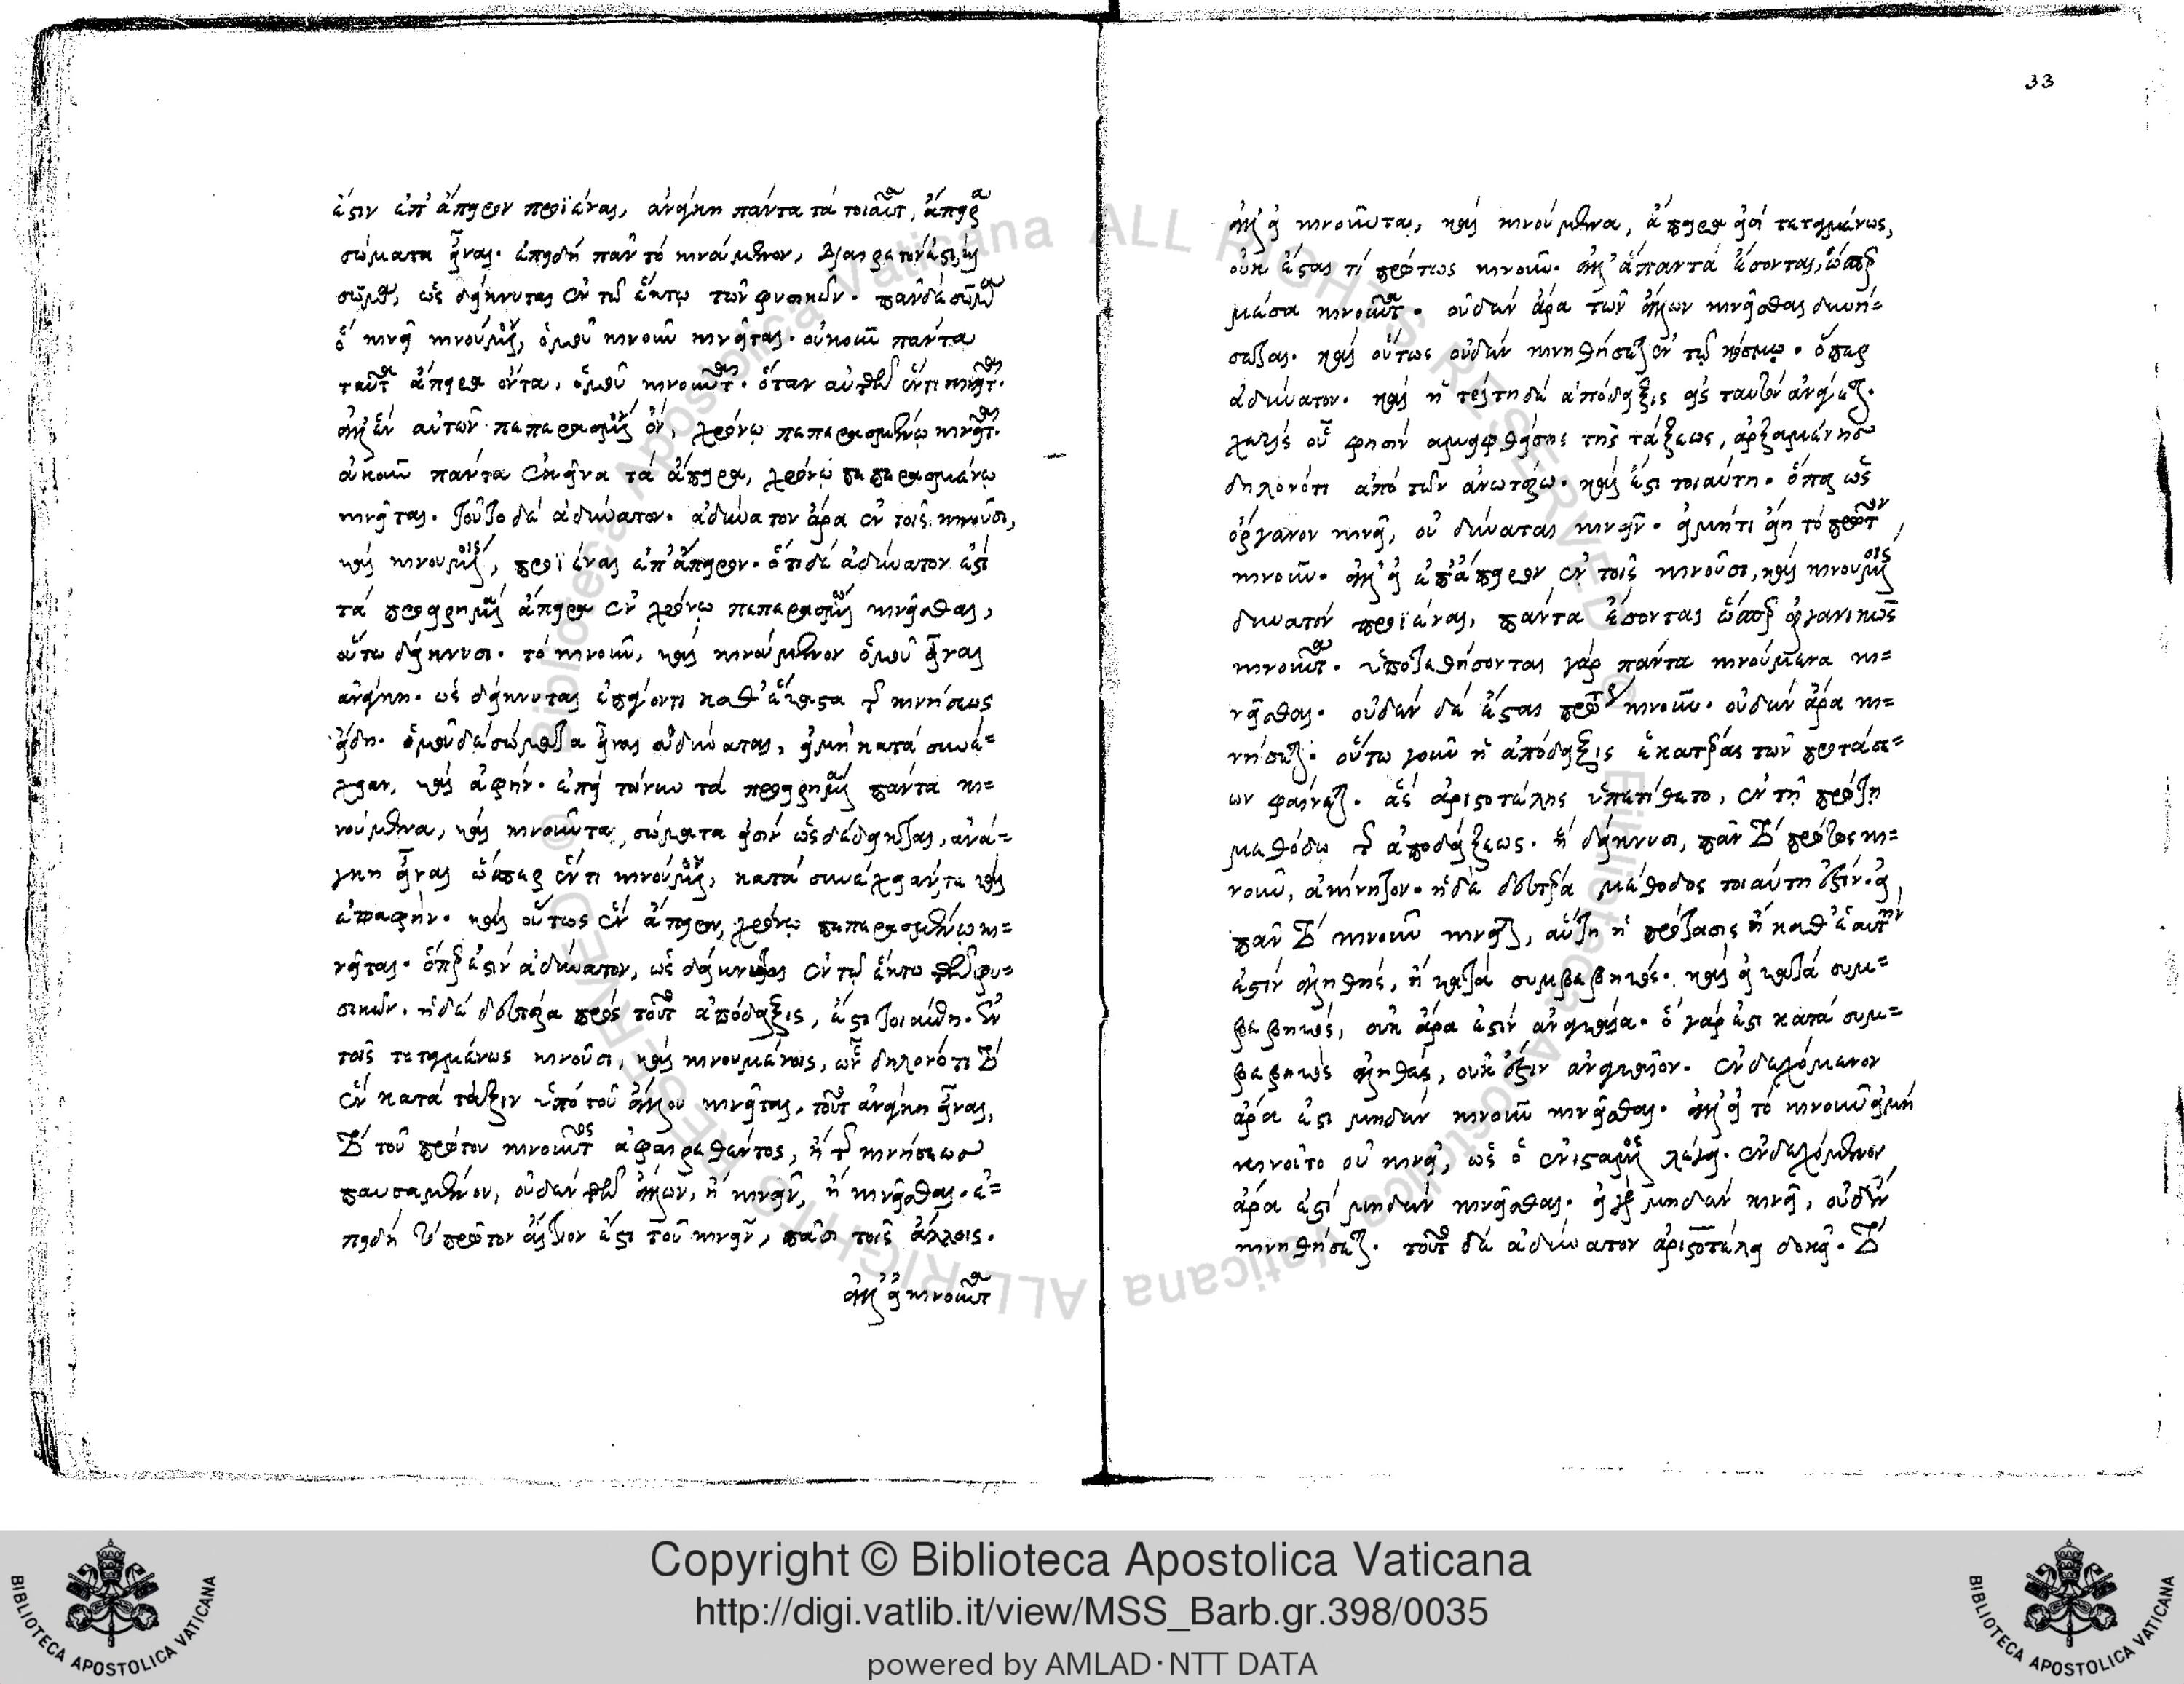 33
ἐστιν ἐπ' ἄπειρον προϊέναι, ἀνάγκη πάντα τὰ τοιαῦτα, ἄπειρα
σώματα εἶναι. ἐπειδὴ πᾶν τὸ κινούμενον, διαιρετόν ἐστι, καὶ
σῶμα, ὡς δείκνυται ἐν τῷ ἕκτῳ τῶν φυσικῶν. πᾶν δὲ σῶμα
ὃ κινεῖ κινούμενον, ὁμοῦ κινοῦν κινεῖται. οὐκοῦν πάντα
ταῦτα ἄπειρα ὄντα, ὁμοῦ κινοῦνται. ὅταν αὐτῶν ἕν τι κινῆται.
ἀλλ' ἓν αὐτῶν πεπερασμένον ὂν, χρόνῳ πεπερασμένῳ κινεῖται.
οὐκοῦν πάντα ἐκεῖνα τὰ ἄπειρα, χρόνῳ πεπερασμένῳ
κινεῖται. τοῦτο δὲ ἀδύνατον. ἀδύνατον ἄρα ἐν τοῖς κινοῦσι,
καὶ κινουμένοις, προϊέναι ἐπ' ἄπειρον. ὅτι δὲ ἀδύνατόν ἐστι
τὰ προειρημένα ἄπειρα ἐν χρόνῳ πεπερασμένῳ κινεῖσθαι,
οὕτω δείκνυσι. τὸ κινοῦν, καὶ κινούμενον ὁμοῦ εἶναι
ἀνάγκη. ὡς δείκνυται ἐπιόντι καθ' ἕκαστα τῆς κινήσεως
εἴδη. ὁμοῦ δὲ σώματα εἶναι οὐ δύναται, εἰ μὴ κατὰ συνέ=
χειαν, καὶ ἁφήν. ἐπεὶ τοίνυν τὰ προειρημένα πάντα κι=
νούμενα, καὶ κινοῦντα, σώματά εἰσιν ὡς δέδεικται, ἀνά=
γκη εἶναι ὥσπερ ἕν τι κινούμενον, κατὰ συνέχειάν τε καὶ
ἐπαφήν. καὶ οὕτως ἓν ἄπειρον, χρόνῳ πεπερασμένῳ κι=
νεῖται. ὅπερ ἐστὶν ἀδύνατον, ὡς δείκνυται ἐν τῷ ἕκτῳ τῶν φυ=
σικῶν. ἡ δὲ δευτέρα πρὸς τοῦτο ἀπόδειξις, ἔστι τοιαύτη. ἐν
τοῖς τεταγμένως κινοῦσι, καὶ κινουμένοις, ὧν δηλονότι τὸ
ἓν κατὰ τάξιν ὑπὸ τοῦ ἄλλου κινεῖται, τοῦτο ἀνάγκη εἶναι,
τὸ τοῦ πρώτου κινοῦντος ἀφαιρεθέντος, ἢ τῆς κινήσεως
παυσαμένου, οὐδὲν τῶν ἄλλων, ἢ κινεῖν, ἢ κινεῖσθαι. ἐ=
πειδὴ τὸ πρῶτον αἴτιόν ἐστι τοῦ κινεῖν, πᾶσι τοῖς ἄλλοις.
ἀλλ' εἰ κινοῦντα
ἀλλ' εἰ κινοῦντα, καὶ κινούμενα, ἄπειρά εἰσι τεταγμένως,
οὐκ ἔσται τὶ πρώτως κινοῦν. ἀλλ' ἅπαντα ἔσονται, ὥσπερ
μέσα κινοῦντα. οὐδὲν ἄρα τῶν ἄλλων κινεῖσθαι δυνή=
σεται. καὶ οὕτως οὐδὲν κινηθήσεται ἐν τῷ κόσμῳ. ὅπερ
ἀδύνατον. καὶ ἡ τρίτη δὲ ἀπόδειξις εἰς ταυτὸν ἀνάγεται.
χωρὶς οὗ φησὶν ἀμειφθείσης τῆς τάξεως, ἀρξαμένης
δηλονότι ἀπὸ τῶν ἀνωτέρω. καὶ ἔστι τοιαύτη. ὅπερ ὡς
ὄργανον κινεῖ, οὐ δύναται κινεῖν. εἰ μή τι εἴη τὸ πρῶτον
κινοῦν. ἀλλ' εἰ ἐπ' ἄπειρον ἐν τοῖς κινοῦσι, καὶ κινουμένοις
δυνατὸν προϊέναι, πάντα ἔσονται ὥσπερ ὀργανικῶς
κινοῦντα. ὑποτεθήσονται γὰρ πάντα κινούμενα κι=
νεῖσθαι. οὐδὲν δὲ ἔσται πρώτως κινοῦν. οὐδὲν ἄρα κι=
νήσεται. οὕτω γοῦν ἡ ἀπόδειξις ἑκατέρας τῶν προτάσε=
ων φαίνεται. ἃς ἀριστοτέλης ὑπετίθετο, ἐν τῇ πρώτῃ
μεθόδῳ τῆς ἀποδείξεως. ἢ δείκνυσι, πᾶν τὸ πρώτως κι=
νοῦν, ἀκίνητον. ἡ δὲ δευτέρα μέθοδος τοιαύτη ἐστίν. εἰ
πᾶν τὸ κινοῦν κινεῖται, αὕτη ἡ πρότασις ἢ καθ' ἑαυτήν
ἐστιν ἀληθής, ἢ κατὰ συμβεβηκός. καὶ εἰ κατὰ συμ=
βεβηκός, οὐκ ἄρα ἐστὶν ἀναγκαία. ὃ γάρ ἐστι κατὰ συμ=
βεβηκὸς ἀληθές, οὐκ ἔστιν ἀναγκαῖον. ἐνδεχόμενον
ἄρα ἐστὶ μηδὲν κινοῦν κινεῖσθαι. ἀλλ' εἰ τὸ κινοῦν εἰ μὴ
κινοῖτο οὐ κινεῖ, ὡς ὁ ἐνιστάμενος λέγει. ἐνδεχόμενον
ἄρα ἐστὶ μηδὲν κινεῖσθαι. εἰ γὰρ μηδὲν κινεῖ, οὐδὲν
κινηθήσεται. τοῦτο δὲ ἀδύνατον ἀριστοτέλει δοκεῖ. τὸ
Biblioteca Apostolica Vaticana ALL RIGHTS RESERVED ©
Copyright © Biblioteca Apostolica Vaticana
http://digi.vatlib.it/view/MSS_Barb.gr.398/0035
powered by AMLAD·NTT DATA
BIBLIOTECA APOSTOLICA VATICANA
BIBLIOTECA APOSTOLICA VATICANA